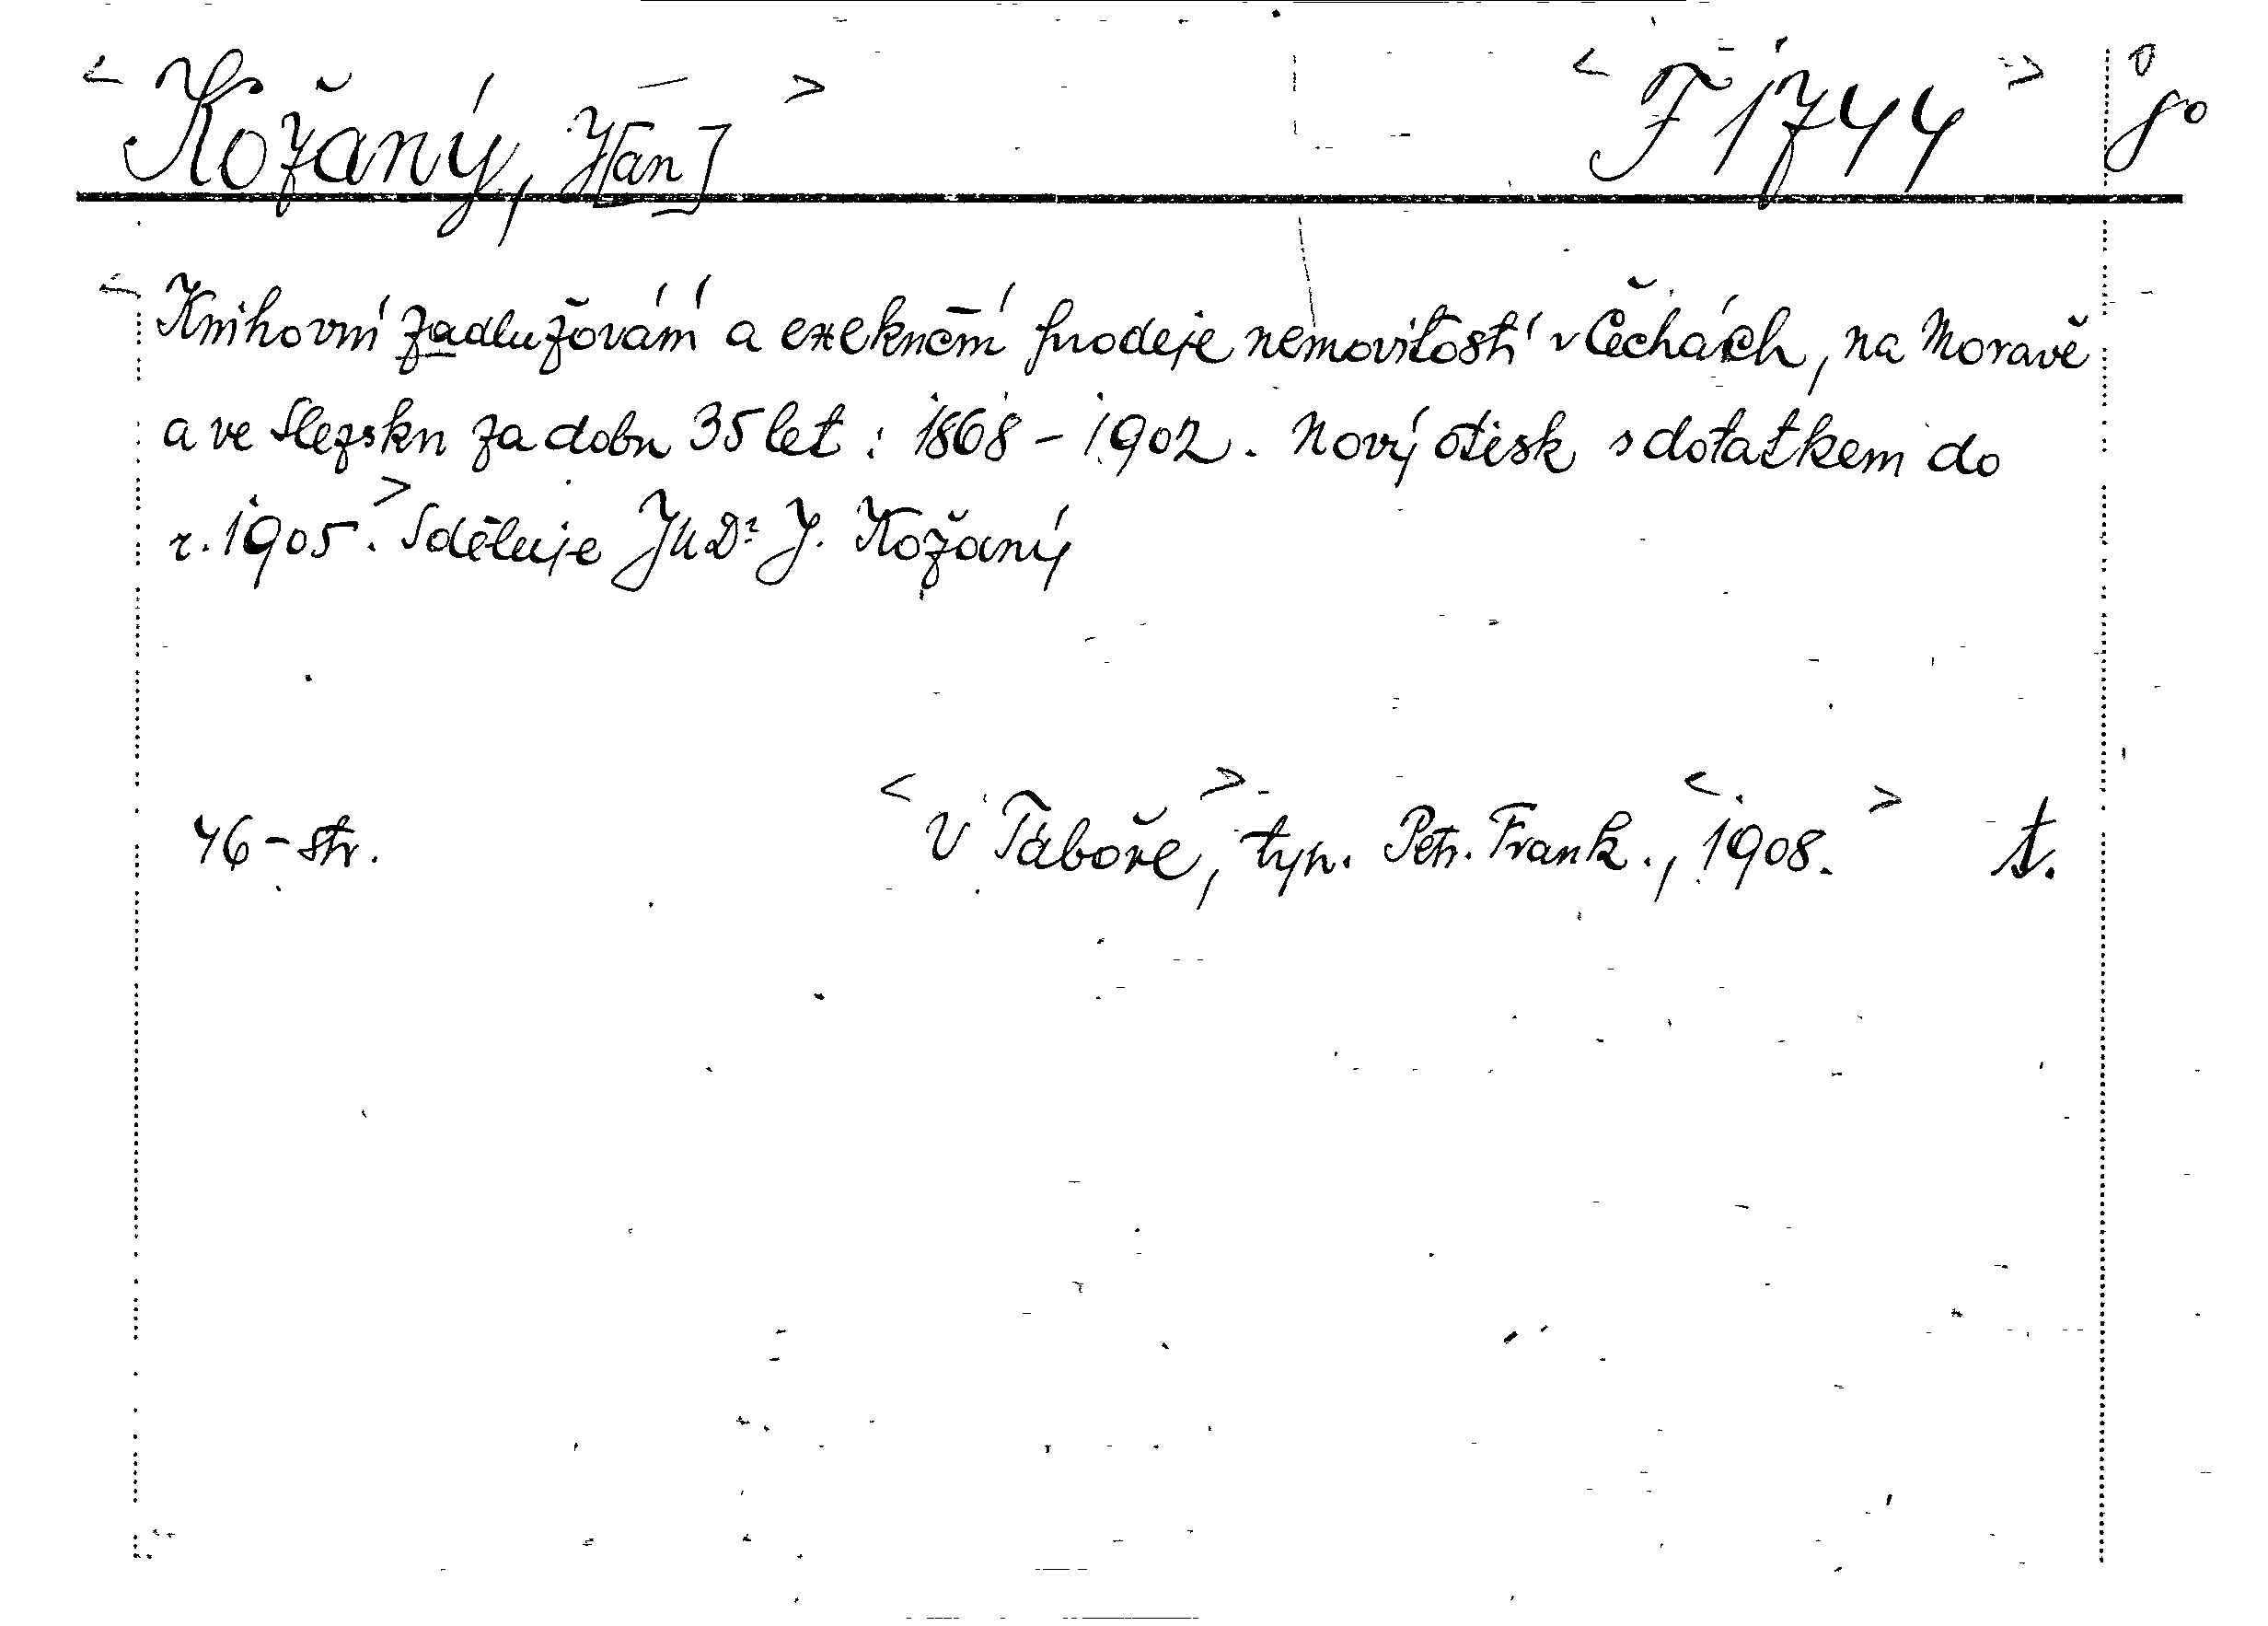 < Kožaný, J[an] > < F 1744 > 8°
< Knihovní zadlužování a exekuční prodeje nemovitostí v Čechách, na Moravě
a ve Slezsku za dobu 35 let : 1868 - 1902. Nový otisk s dodatkem do
r. 1905. > Sděluje JUDr J. Kožaný
46 - str. < V Táboře >, typ. Petr. Frank., < 1908. > t.